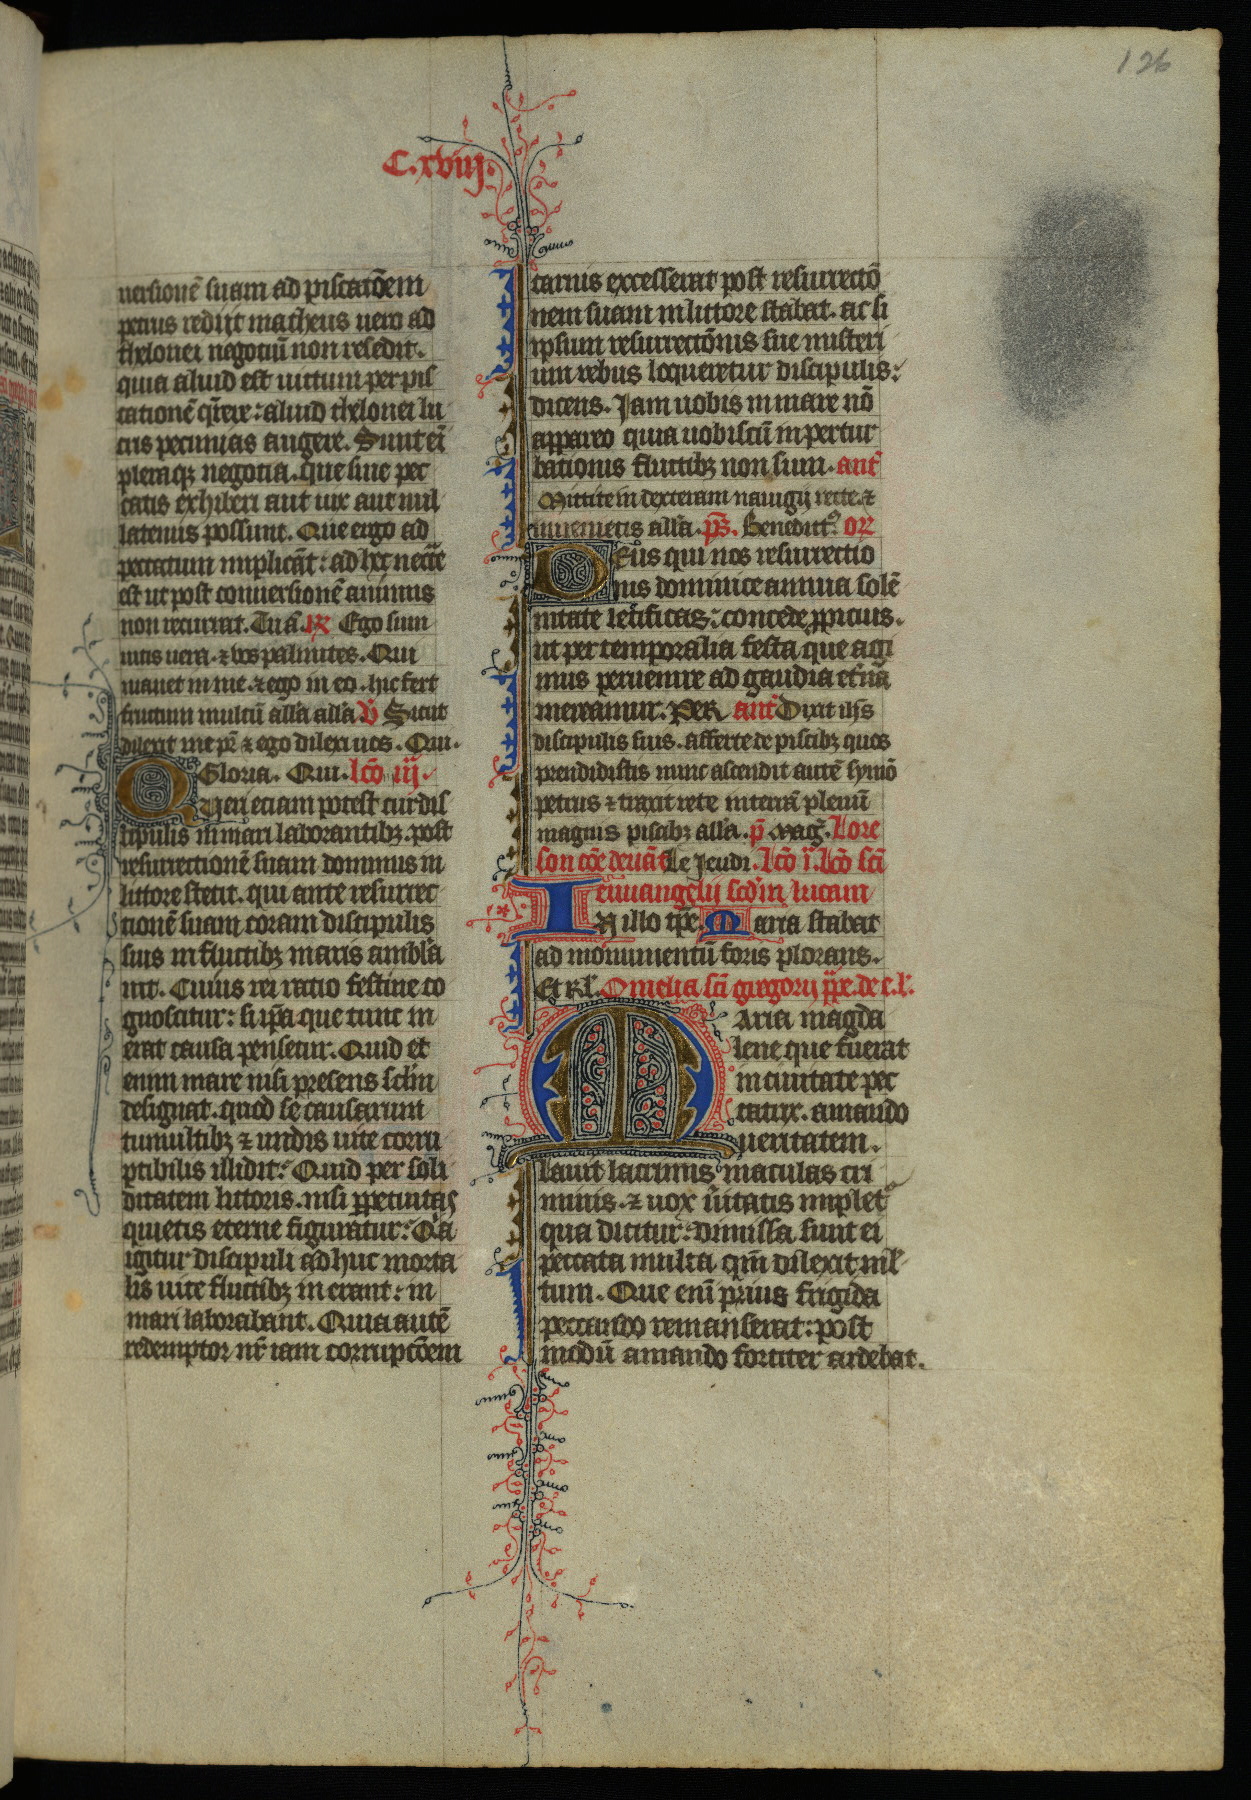 126
C. xviij.
uersionē suam ad piscatōem
petrus redijt matheus uero ad
thelonei negotiū non resedit.
quia aliud est uictum per pis
cationē q̄rere: aliud thelonei lu
cris pecunias augere. Sunt eī
pleraqꝫ negotia. que sine pec
catis exhiberi aut uix aut nul
latenus possunt. Que ergo ad
peccatum implicāt: ad hec necce̅
est ut post conuersionē animus
non recurrat. Tu a. ix Ego sum
uitis uera. ⁊ vos palmites. Qui
manet in me. ⁊ ego in eo. hic fert
fructum multū all'a all'a V̄ Sicut
dilexit me pr̄ ⁊ ego dilexi uos. Qui.
Gloria. Qui. lcō iij.
Queri eciam potest cur dis
cipulis in mari laborantibꝫ. post
resurrectionē suam dominus in
littore stetit. qui ante resurrec
tionē suam coram discipulis
suis in fluctibꝫ maris ambla
uit. Cuius rei ratio festine co
gnoscitur: si ip̄a que tunc in
erat causa pensetur. Quid et
enim mare nisi presens sc̄lm
designat. quod se causarum
tumultibꝫ ⁊ undis uite corru
ptibilis illidit: Quid per soli
ditatem littoris. nisi ꝑpetuitas
quietis eterne figuratur: Q̄a
igitur discipuli ad huc morta
lis uite fluctibꝫ inerant: in
mari laborabant. Quia autē
redemptor nr̄ iam corrupcōem
carnis excesserat post resurrectō
nem suam in littore stabat. ac si
ipsum resurrectōnis sue misteri
um rebus loqueretur discipulis:
dicens. Jam uobis in mare nō
appareo quia uobiscū in pertur
bationis fluctibꝫ non sum. ant̄
Mittite in dexteram nauigij rethe. ⁊
inuenietis all'a. ps̄. Benedict⁹. or̄
Deus qui nos resurrectio
nis dominice annua solē
nitate letificas: concede ꝓpicius.
ut per temporalia festa que agi
mus peruenire ad gaudia et̄na
mereamur. Per ant̄ Dixit ih̄s
discipulis suis. afferte de piscibꝫ quos
prendidistis nunc ascendit autē symō
petrus ⁊ traxit rete in terrā plenū
magnis piscibꝫ all'a. p̄ maḡ. Lore
son cōe deuāt Le jeudi. lcō i. lcō sc̄i
euuangelij scd̄m lucam
In illo tp̄r̄e. Maria stabat
ad monumentū foris plorans.
Et rl'. Omelia sc̄i gregorij pp̄e. de e. l'.
Maria magda
lene que fuerat
in ciuitate pec
catrix. amando
ueritatem.
lauit lacrimis maculas cri
minis. ⁊ uox ūitatis implet̄
qua dicitur: dimissa sunt ei
peccata multa qm̄ dilexit mul
tum. Que enī prius frigida
peccando remanserat: post
modū amando fortiter ardebat.